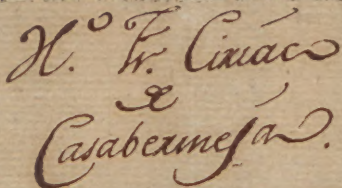 H.º Fr. Ciriáco
de
Casabermeja.